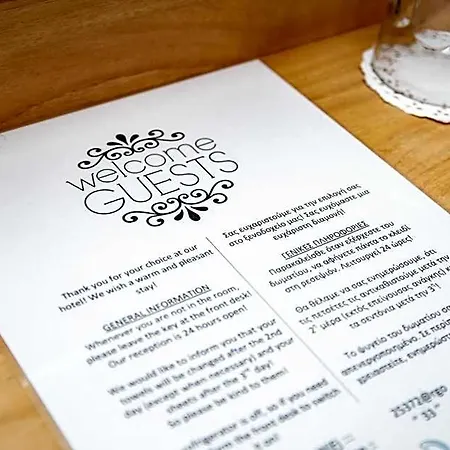 welcome
GUESTS
Thank you for your choice at our
hotel! We wish a warm and pleasant
stay!
GENERAL INFORMATION
Whenever you are not in the room,
please leave the key at the front desk!
Our reception is 24 hours open!
We would like to inform you that your
towels will be changed after the 2nd
day (except when necessary) and your
sheets after the 3rd day!
So please be kind to them!
refrigerator is off, so if you need
the front desk to switch
it on!
Σας ευχαριστούμε για την επιλογή σας
στο ξενοδοχείο μας! Σας ευχόμαστε μια
ευχάριστη διαμονή!
ΓΕΝΙΚΕΣ ΠΛΗΡΟΦΟΡΙΕΣ
Παρακαλείσθε όταν εξέρχεστε του
δωματίου, να αφήνετε πάντα το κλειδί
στη ρεσεψιόν. Λειτουργεί 24 ώρες!
Θα θέλαμε να σας ενημερώσουμε, ότι
τις πετσέτες τις αντικαθιστούμε μετά την
2η μέρα (εκτός επείγουσας ανάγκης) κ
τα σεντόνια μετά την 3η!
Το ψυγείο του δωματίου σα
απενεργοποιημένο. Σε περίπ
χρειαστείτε, ενημερώστ
25372@rgo
" 33 "